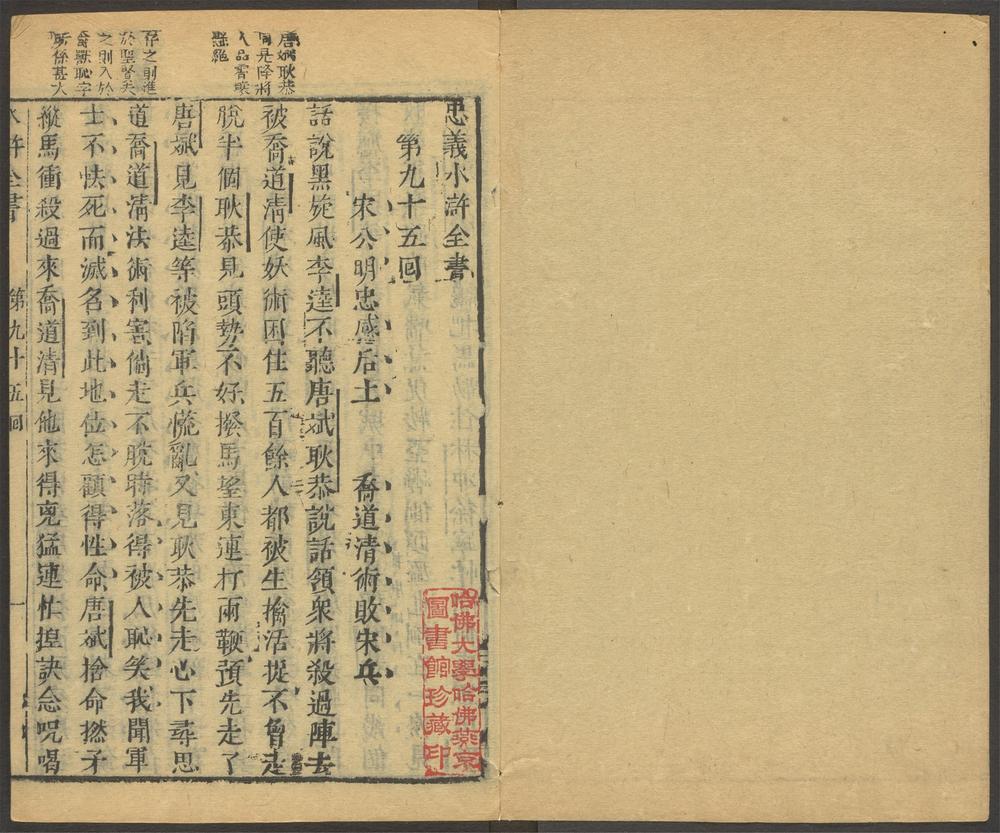 忠義水滸全書
第九十五回
宋公明忠感后土 喬道清術敗宋兵
話說黑旋風李逵不聽唐斌耿恭說話領衆將殺過陣去
被喬道清使妖術困住五百餘人都被生擒活捉不曾走
脫半個耿恭見頭勢不好撥馬望東連打兩鞭預先走了
唐斌見李逵等被陷軍兵慌亂又見耿恭先走心下尋思
道喬道清法術利害倘走不脫時落得被人恥笑我聞軍
士不怯死而滅名到此地位怎顧得性命唐斌捨命撚矛
縱馬衝殺過來喬道清見他來得兇猛連忙揑訣念呪喝
唐斌耿恭
同是降將
人品霄壤
懸絕
存之則進
於聖賢失
之則入於
禽獸恥字
所係甚大
水滸全書 第九十五回 一
哈佛大學哈佛燕京
圖書館珍藏印